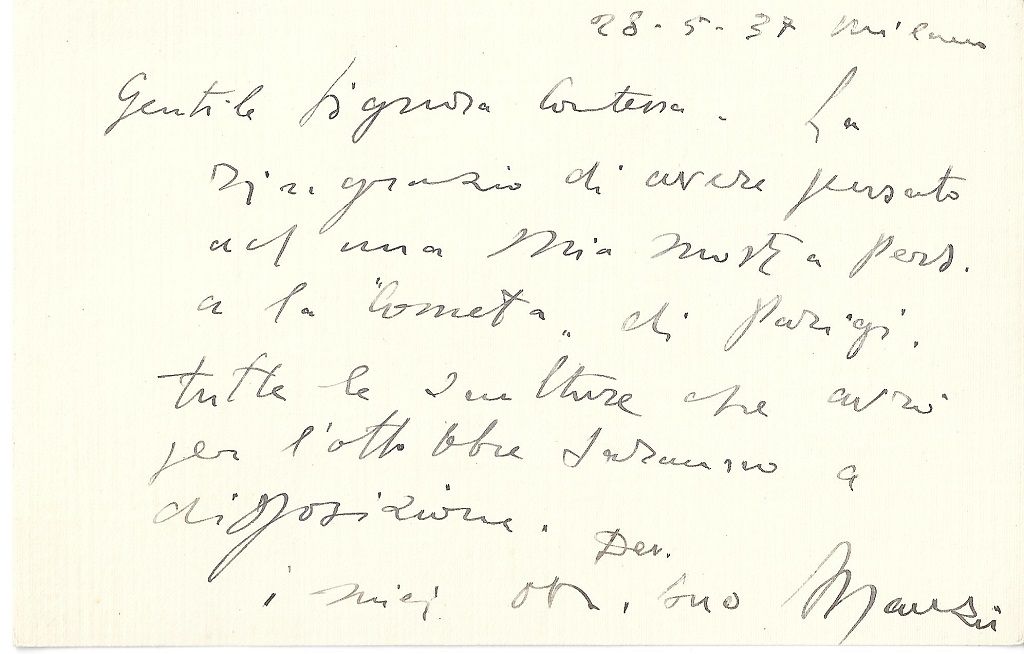 28-5-37 Milano
Gentile Signora Contessa. La
ringrazio di avere pensato
ad una mia mostra pers.
a la "Cometa" di Parigi.
tutte le sculture che avrò
per l'ottobbre saranno a
disposizione.
Dev.
i miei suo Manzù